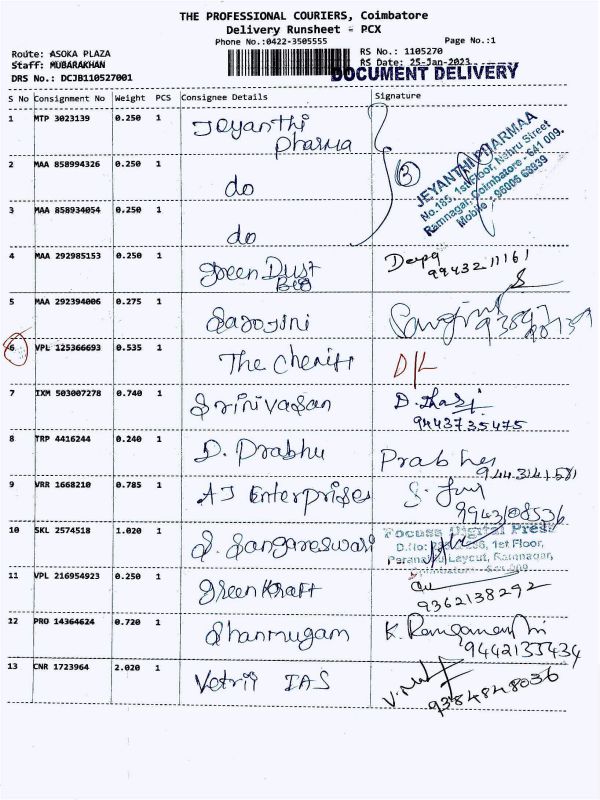 THE PROFESSIONAL COURIERS, Coimbatore
Delivery Runsheet - PCX
Phone No.:0422-3505555
Page No.:1
Route: ASOKA PLAZA
RS No.: 1105270
Staff: MUBARAKHAN
RS Date: 25-Jan-2023
DRS No.: DCJB110527001
DOCUMENT DELIVERY
S No Consignment No Weight PCS Consignee Details Signature
1 MTP 3023139 0.250 1 Jeyanthi
Pharma
3
JEYANTHI PHARMAA
No.185, 1st Floor, Nehru Street
Ramnagar, Coimbatore - 641 009.
Mobile : 96006 68939
2 MAA 858994326 0.250 1 do
3 MAA 858934054 0.250 1 do
4 MAA 292985153 0.250 1 Green Dust
Bag
Deepa
99432 11161
5 MAA 292394006 0.275 1 Sarojini
6 VPL 125366693 0.535 1 The D/L
7 IXM 503007278 0.740 1 Srinivasan
9443735475
8 TRP 4416244 0.240 1 D. Prabhu Prabhu
9 VRR 1668210 0.785 1 AJ Enterprises
9943108536
10 SKL 2574518 1.020 1 S. Sangareswari
Focuss Digital Press
D.No: 1st Floor,
Layout, Ramnagar,
11 VPL 216954923 0.250 1 Green Kraft
9362138292
12 PRO 14364624 0.720 1 Shanmugam
9442135434
13 CNR 1723964 2.020 1 Vetrii IAS
9384848036